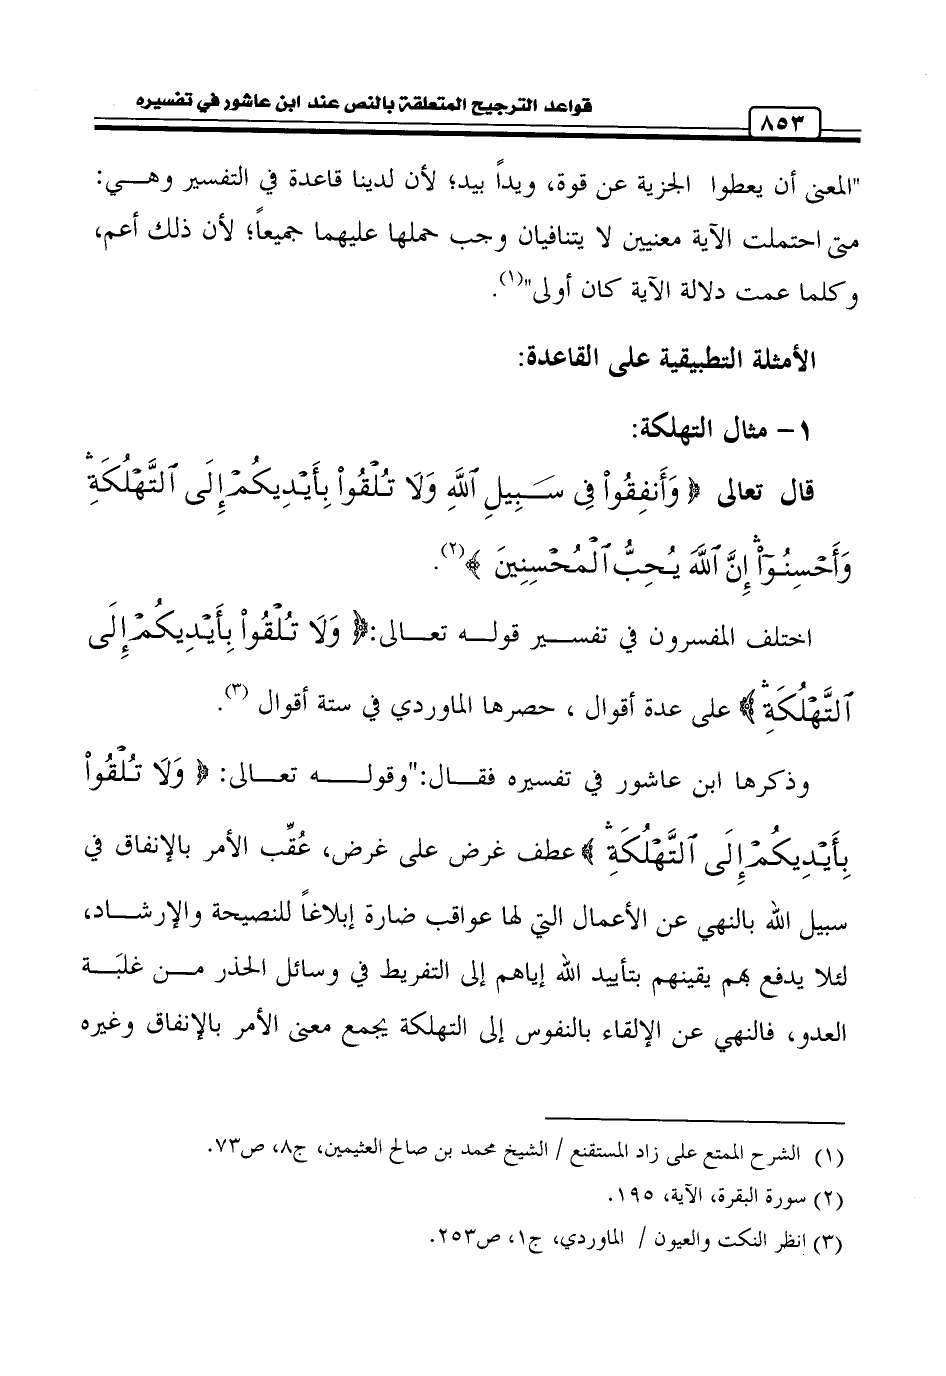 قواعد الترجيح المتعلقة بالنص عند ابن عاشور في تفسيره
٨٥٣
"المعنى أن يعطوا الجزية عن قوة، ويداً بيد؛ لأن لدينا قاعدة في التفسير وهـــي:
متى احتملت الآية معنيين لا يتنافيان وجب حملها عليهما جميعاً؛ لأن ذلك أعم،
وكلما عمت دلالة الآية كان أولى"(١).
الأمثلة التطبيقية على القاعدة:
١- مثال التهلكة:
قال تعالى ﴿ وَأَنفِقُواْ فِى سَبِيلِ ٱللَّهِ وَلَا تُلْقُواْ بِأَيْدِيكُمْ إِلَى ٱلتَّهْلُكَةِۛ
وَأَحْسِنُوٓاْۛ إِنَّ ٱللَّهَ يُحِبُّ ٱلْمُحْسِنِينَ ﴾(٢).
اختلف المفسرون في تفســـير قولـــه تعـــالى:﴿ وَلَا تُلْقُواْ بِأَيْدِيكُمْ إِلَى
ٱلتَّهْلُكَةِۛ ﴾ على عدة أقوال ، حصرها الماوردي في ستة أقوال (٣).
وذكرها ابن عاشور في تفسيره فقــال:"وقولـــــه تعـــالى: ﴿ وَلَا تُلْقُواْ
بِأَيْدِيكُمْ إِلَى ٱلتَّهْلُكَةِۛ ﴾ عطف غرض على غرض، عُقِّب الأمر بالإنفاق في
سبيل الله بالنهي عن الأعمال التي لها عواقب ضارة إبلاغاً للنصيحة والإرشـــاد،
لئلا يدفع بهم يقينهم بتأييد الله إياهم إلى التفريط في وسائل الحذر مـــن غلبَـــة
العدو، فالنهي عن الإلقاء بالنفوس إلى التهلكة يجمع معنى الأمر بالإنفاق وغيره
(١) الشرح الممتع على زاد المستقنع / الشيخ محمد بن صالح العثيمين، ج٨، ص٧٣.
(٢) سورة البقرة، الآية، ١٩٥.
(٣) انظر النكت والعيون / الماوردي، ج١، ص٢٥٣.